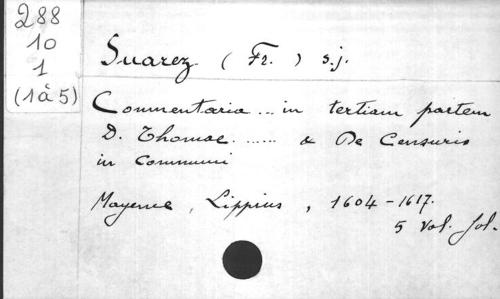 288
10
1
(1 à 5)
Suarez (Fr.) s.j.
Commentaria ... in tertiam partem
D. Thomae ...... & De Censuris
in Communi
Mayence, Lippius, 1604-1617.
5 vol. fol.